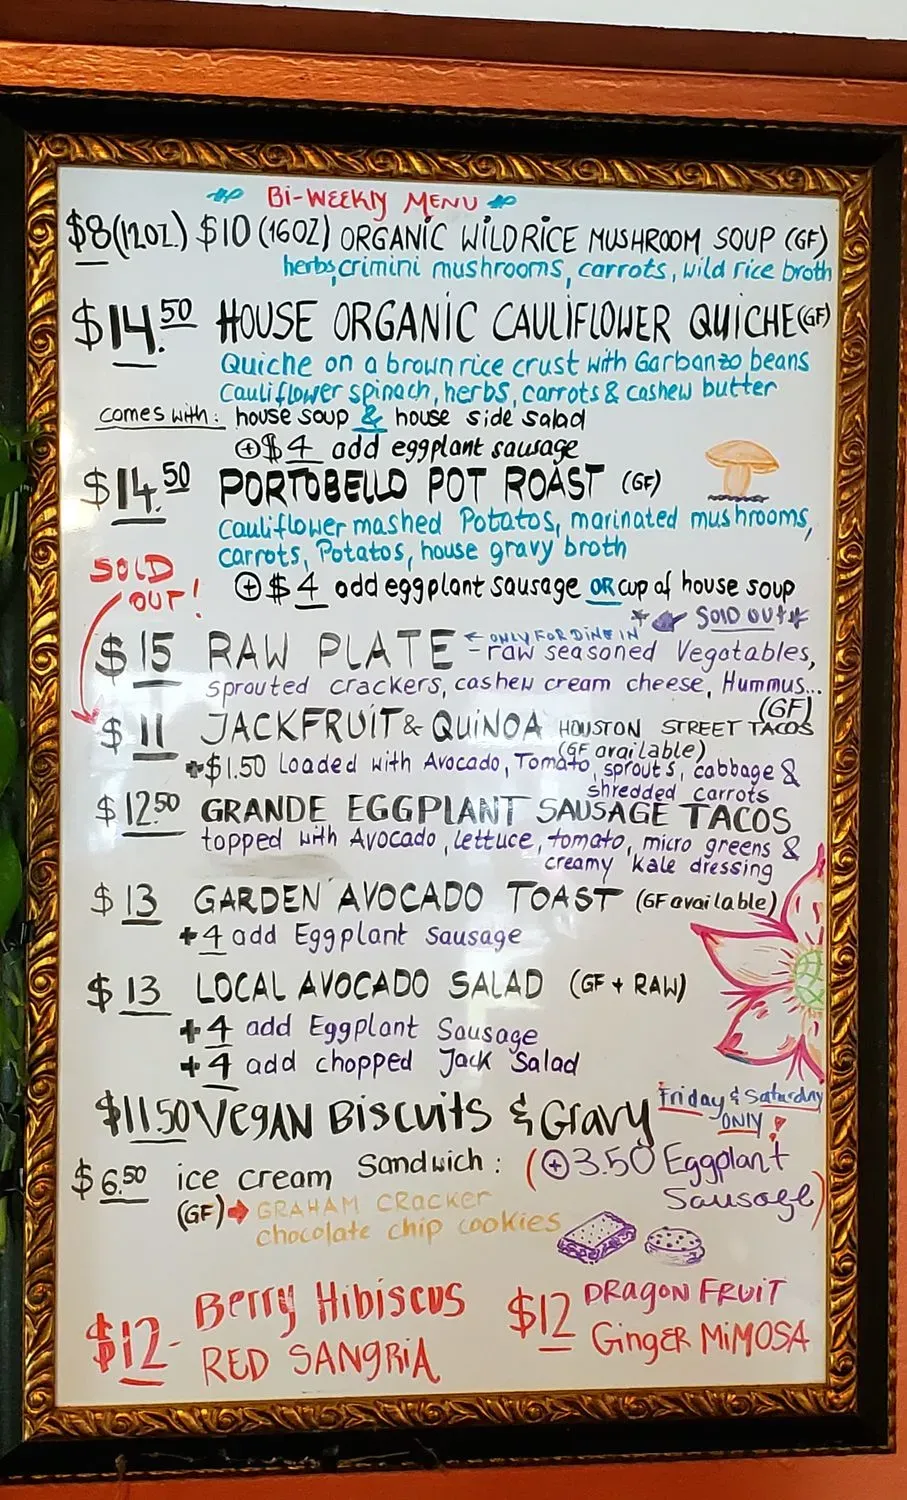 Bi-WEEKLY MENU
$8 (12OZ.) $10 (16OZ) ORGANIC WILD RICE MUSHROOM SOUP (GF)
herbs, crimini mushrooms, carrots, wild rice broth
$14.50 HOUSE ORGANIC CAULIFLOWER QUICHE (GF)
Quiche on a brown rice crust with Garbanzo beans
Cauliflower spinach, herbs, carrots & cashew butter
comes with: house soup & house side salad
+$4 add eggplant sausage
$14.50 PORTOBELLO POT ROAST (GF)
Cauliflower mashed Potatos, marinated mushrooms,
carrots, Potatos, house gravy broth
+$4 add eggplant sausage OR cup of house soup
SOLD OUT!
SOLD OUT
$15 RAW PLATE ← ONLY FOR DINE IN
- raw seasoned Vegatables,
sprouted crackers, cashew cream cheese, Hummus...
(GF)
$11 JACKFRUIT & QUINOA HOUSTON STREET TACOS
(GF available)
+$1.50 Loaded with Avocado, Tomato, sprouts, cabbage &
shredded carrots
$12.50 GRANDE EGGPLANT SAUSAGE TACOS
topped with Avocado, lettuce, tomato, micro greens &
creamy kale dressing
$13 GARDEN AVOCADO TOAST (GF available)
+4 add Eggplant Sausage
$13 LOCAL AVOCADO SALAD (GF + RAW)
+4 add Eggplant Sausage
+4 add chopped Jack Salad
$11.50 VEGAN BiSCUitS & Gravy Friday & Saturday
ONLY!
(+3.50 Eggplant
Sausage)
$6.50 ice cream Sandwich:
(GF)→ GRAHAM CRacker
chocolate chip cookies
$12- Berry Hibiscus
RED SANGRiA
$12 DRagon FRUiT
GingER MiMOSA